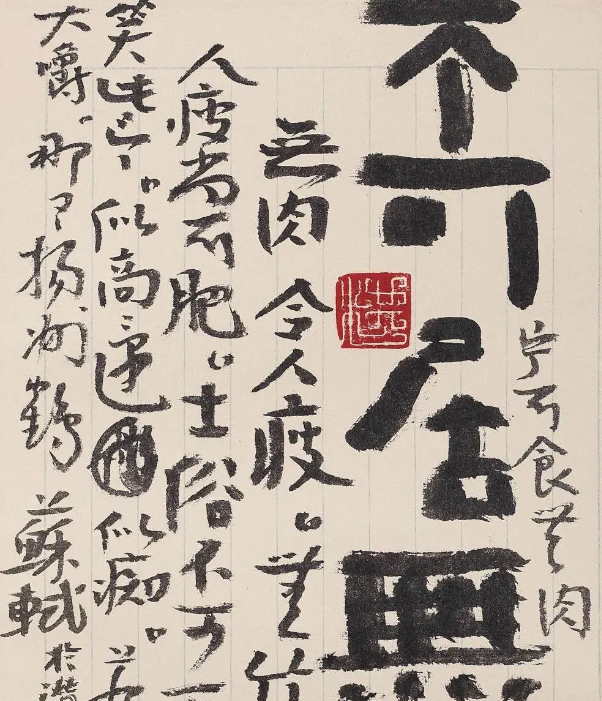 宁可食无肉
不可居無竹
無肉令人瘦。無竹
人瘦尚可肥。士俗不可
笑此言。似高還似痴。若
大嚼、那有揚州鶴 蘇軾 於潛